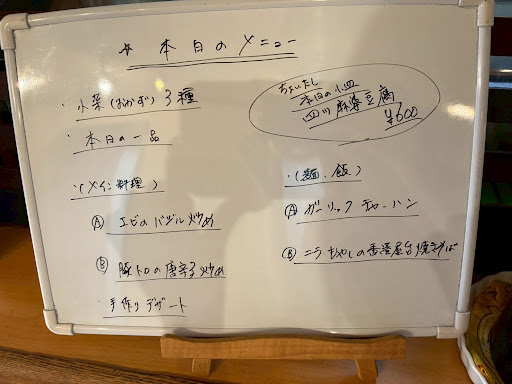 ☆ 本日のメニュー
・小菜(おかず) 3種
・本日の一品
ちょいたし
本日の小皿
四川麻婆豆腐
¥600
・(メイン料理)
Ⓐ エビのバジル炒め
Ⓑ 豚トロの唐辛子炒め
・手作りデザート
・(麺・飯)
Ⓐ ガーリックチャーハン
Ⓑ ニラ・もやしの香港屋台焼きそば